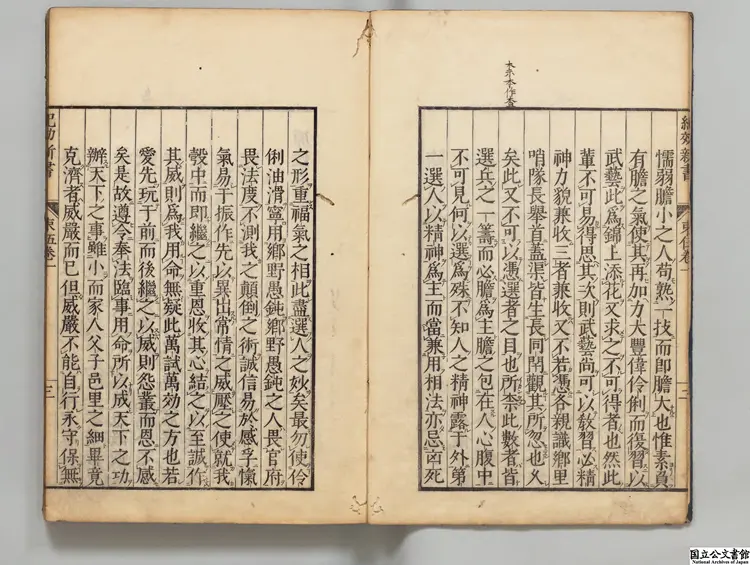 懦弱膽小之人苟熟一技而即膽大也惟素負
有膽之氣使其再加力大豐偉伶俐而復習以
武藝此爲錦上添花又求之不可得者也然此
輩不可易得思其次則武藝尚可以敎習必精
神力貌兼收二者兼收又不若憑各親識鄉里
哨隊長舉首蓋渠皆生長同閈觀其所忽也久
矣此又不可以憑選者之目也所禁此數者皆
選兵之一籌而必膽爲主膽之包在人心腹中
不可見何以選爲殊不知人之精神露于外第
一選人以精神爲主而當兼用相法亦忌凶死
之形重福氣之相此盡選人之妙矣最勿使伶
俐油滑寧用鄉野愚鈍鄉野愚鈍之人畏官府
畏法度不測我之顛倒之術誠信易於感孚愾
氣易于振作先以異出常情之威壓之使就我
彀中而即繼之以重恩收其心結之以至誠作
其威則爲我用命無疑此萬試萬効之方也若
愛先玩于前而後繼之以威則怨叢而恩不感
矣是故遵令奉法臨事用命所以成天下之功
辦天下之事雖小而家人父子邑里之細畢竟
克濟者威嚴而已但威嚴不能自行永守保無
紀効新書
東伍卷一
三
国立公文書館
National Archives of Japan